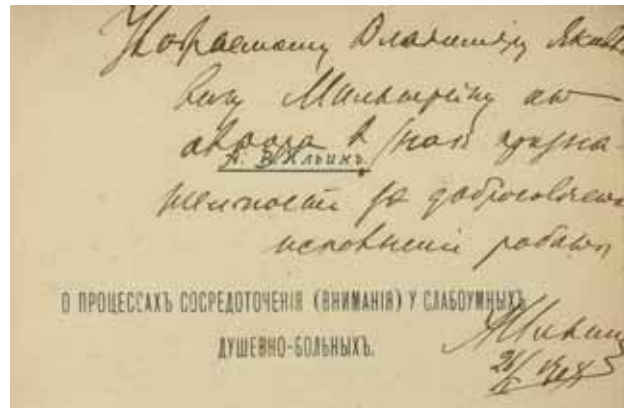 Уважаемому Владиміру Яковле
вичу от
автора в знак призна-
А. В. Ильинъ.
тельности за добросовестное
исполненіе работы
О ПРОЦЕССАХЪ СОСРЕДОТОЧЕНІЯ (ВНИМАНІЯ) У СЛАБОУМНЫХЪ
ДУШЕВНО-БОЛЬНЫХЪ.
АИльин